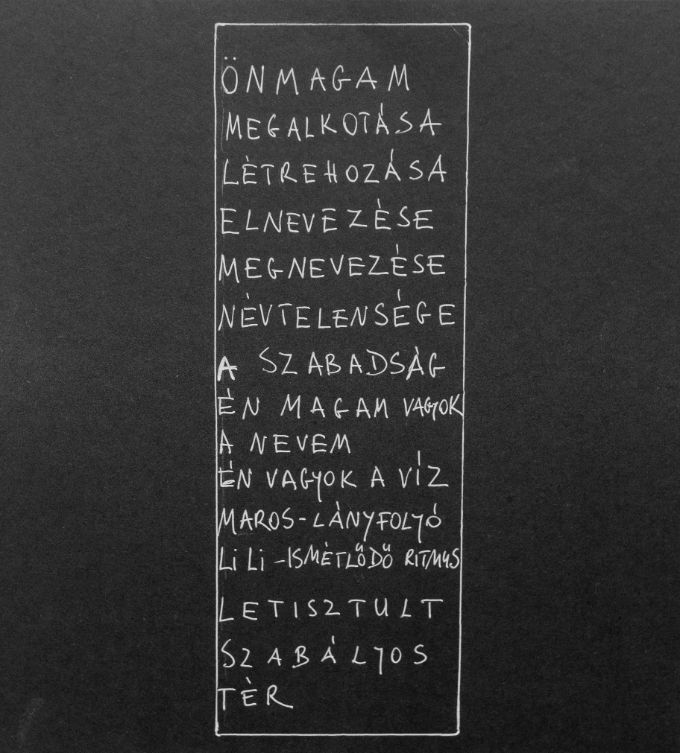 ÖNMAGAM
MEGALKOTÁSA
LÉTREHOZÁSA
ELNEVEZÉSE
MEGNEVEZÉSE
NÉVTELENSÉGE
A SZABADSÁG
ÉN MAGAM VAGYOK
A NEVEM
ÉN VAGYOK A VÍZ
MAROS-LÁNYFOLYÓ
LiLi-ISMÉTLŐDŐ RITMUS
LETISZTULT
SZABÁLYOS
TÉR